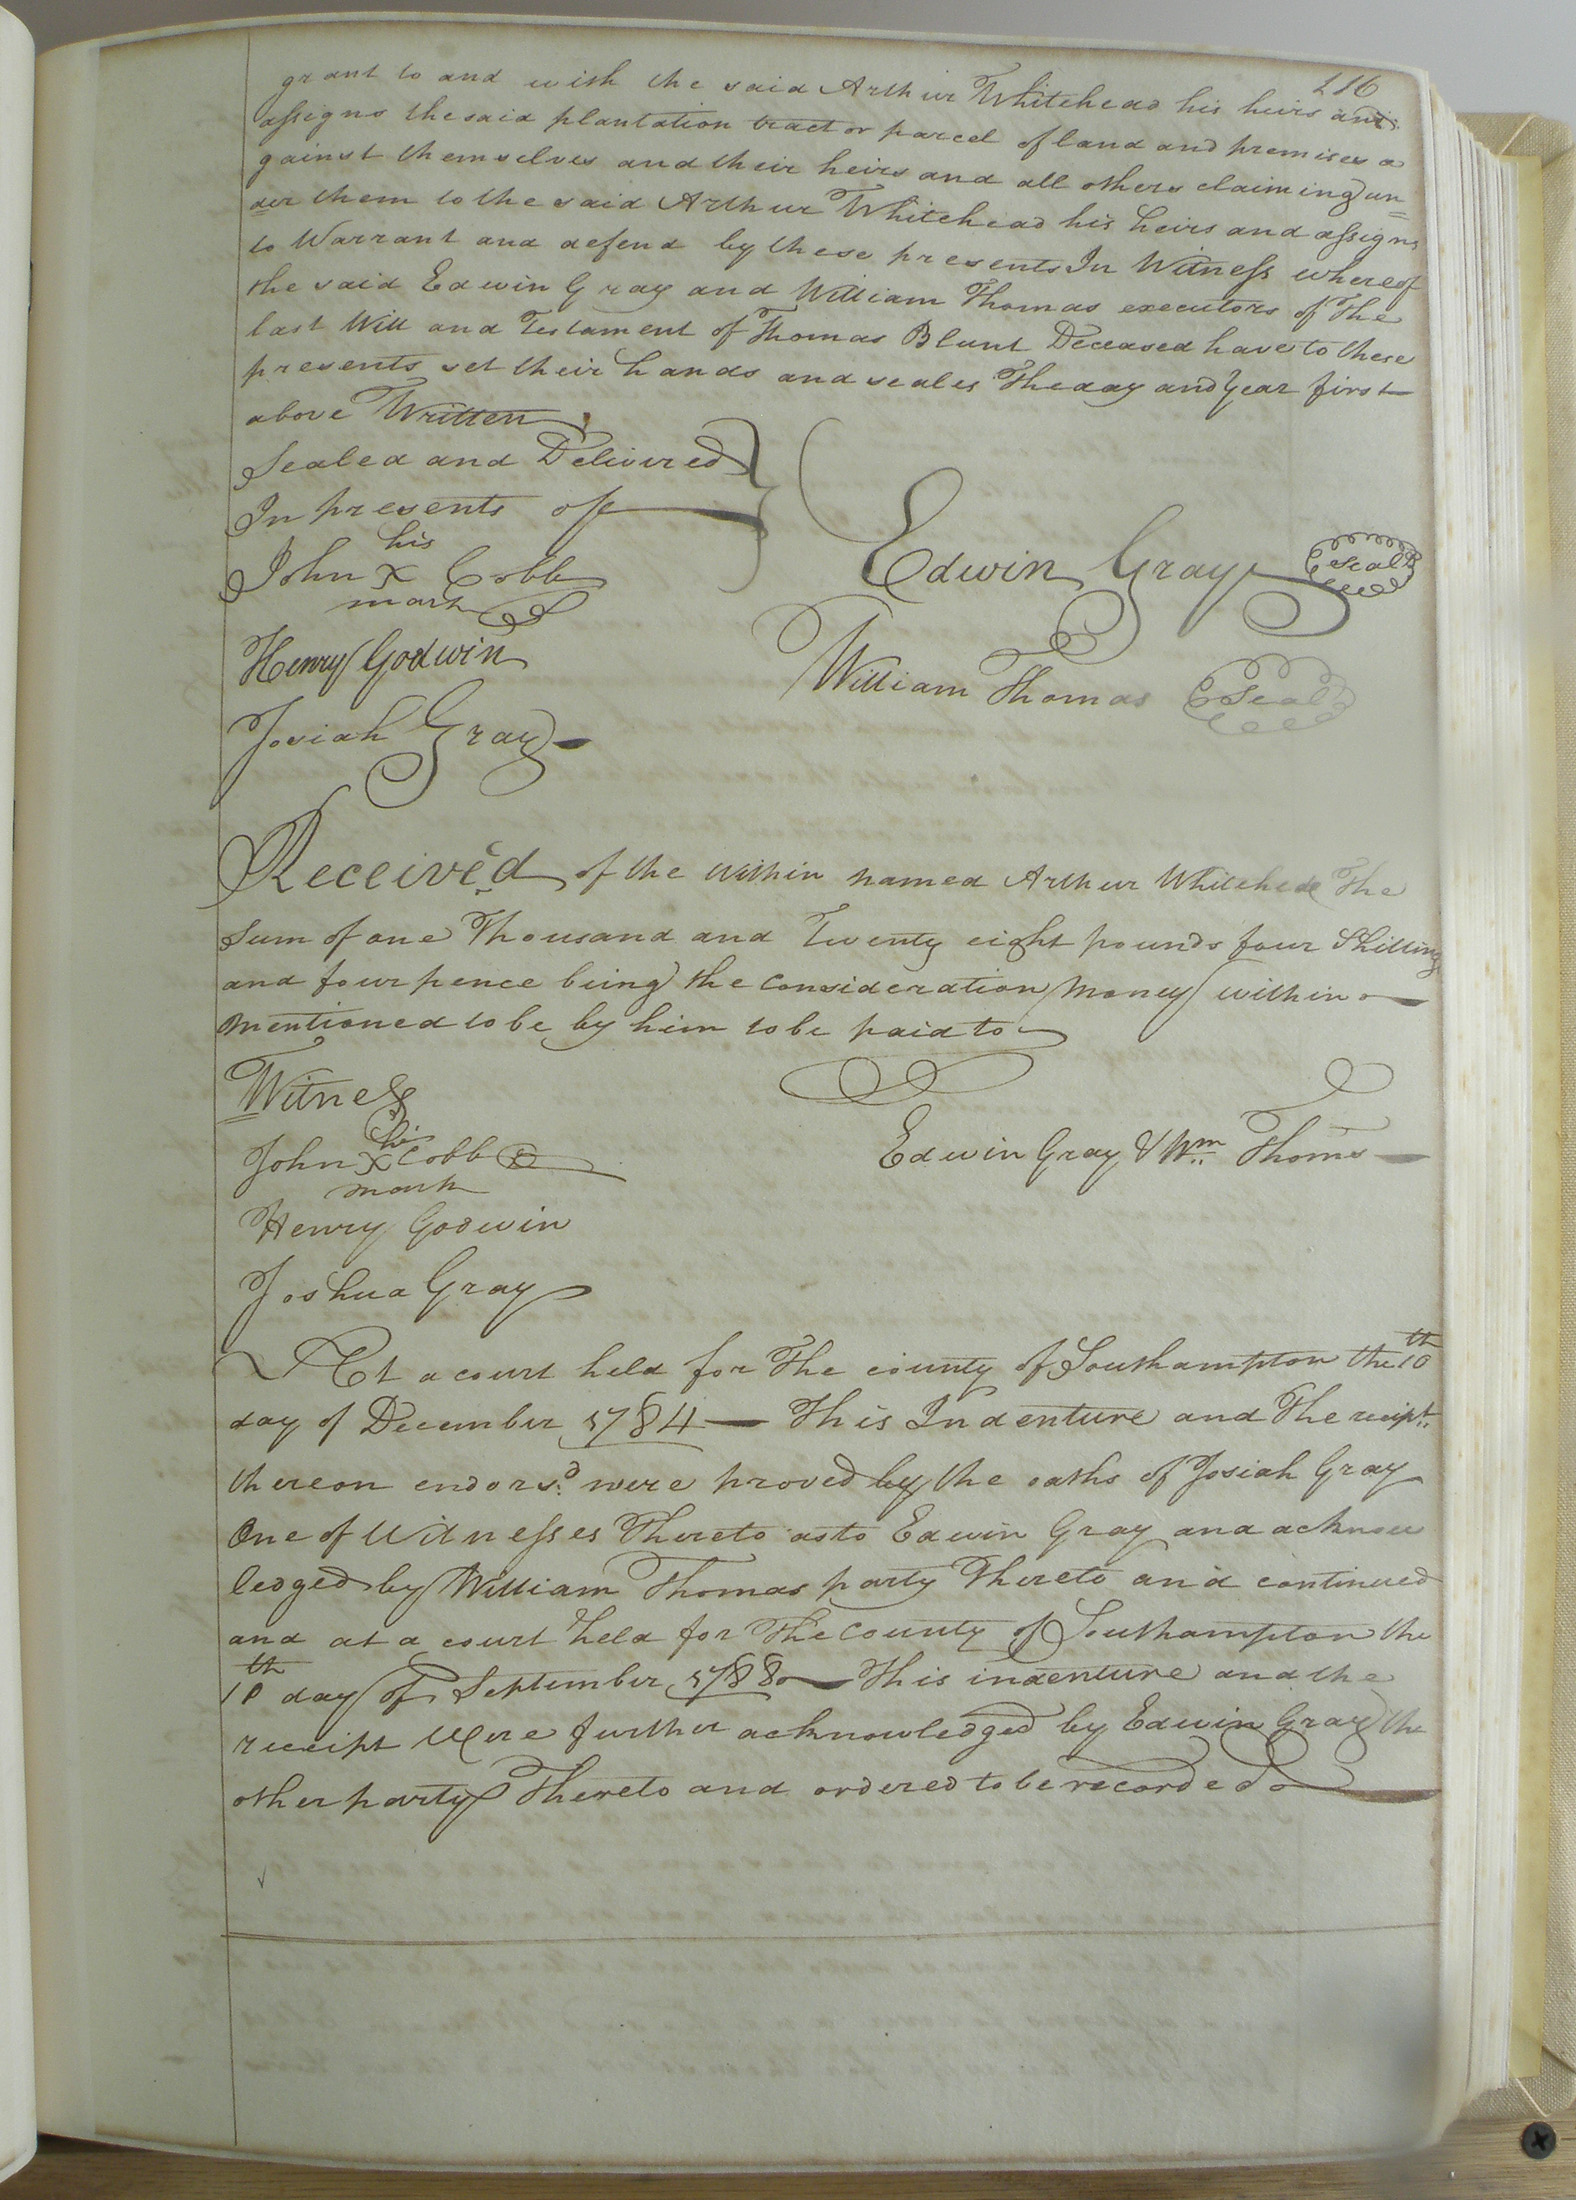 216
grant to and with the said Arthur Whitehead his heirs and
assigns the said plantation tract or parcel of land and premises a
gainst themselves and their heirs and all others claiming un=
der them to the said Arthur Whitehead his heirs and assigns
to Warrant and defend by these presents In Witness whereof
the said Edwin Gray and William Thomas executors of The
last Will and Testament of Thomas Blunt Deceased have to these
presents set their hands and seales The day and Year first
above Written
Sealed and Delivered
In presents of
his
John X Cobb
mark
Edwin Gray Seal
Henry Godwin
William Thomas Seal
Josiah Gray
Received of the within named Arthur Whitehede The
Sum of one Thousand and Twenty eight pounds four Shillings
and four pence being the Consideration Money within
mentioned to be by him to be paid to
Witness
his
John X Cobb
mark
Edwin Gray & Wm Thoms
Henry Godwin
Joshua Gray
At a court held for The county of Southampton the 10th
day of December 1784 — This Indenture and The recipt
thereon endorsd were proved by the oaths of Josiah Gray
One of Witnesses Thereto as to Edwin Gray and acknow
ledged by William Thomas party Thereto and continued
and at a court held for The County of Southampton the
th
10 day of September 1788 — This indenture and the
receipt Were further acknowledged by Edwin Gray the
other party Thereto and ordered to be recorded